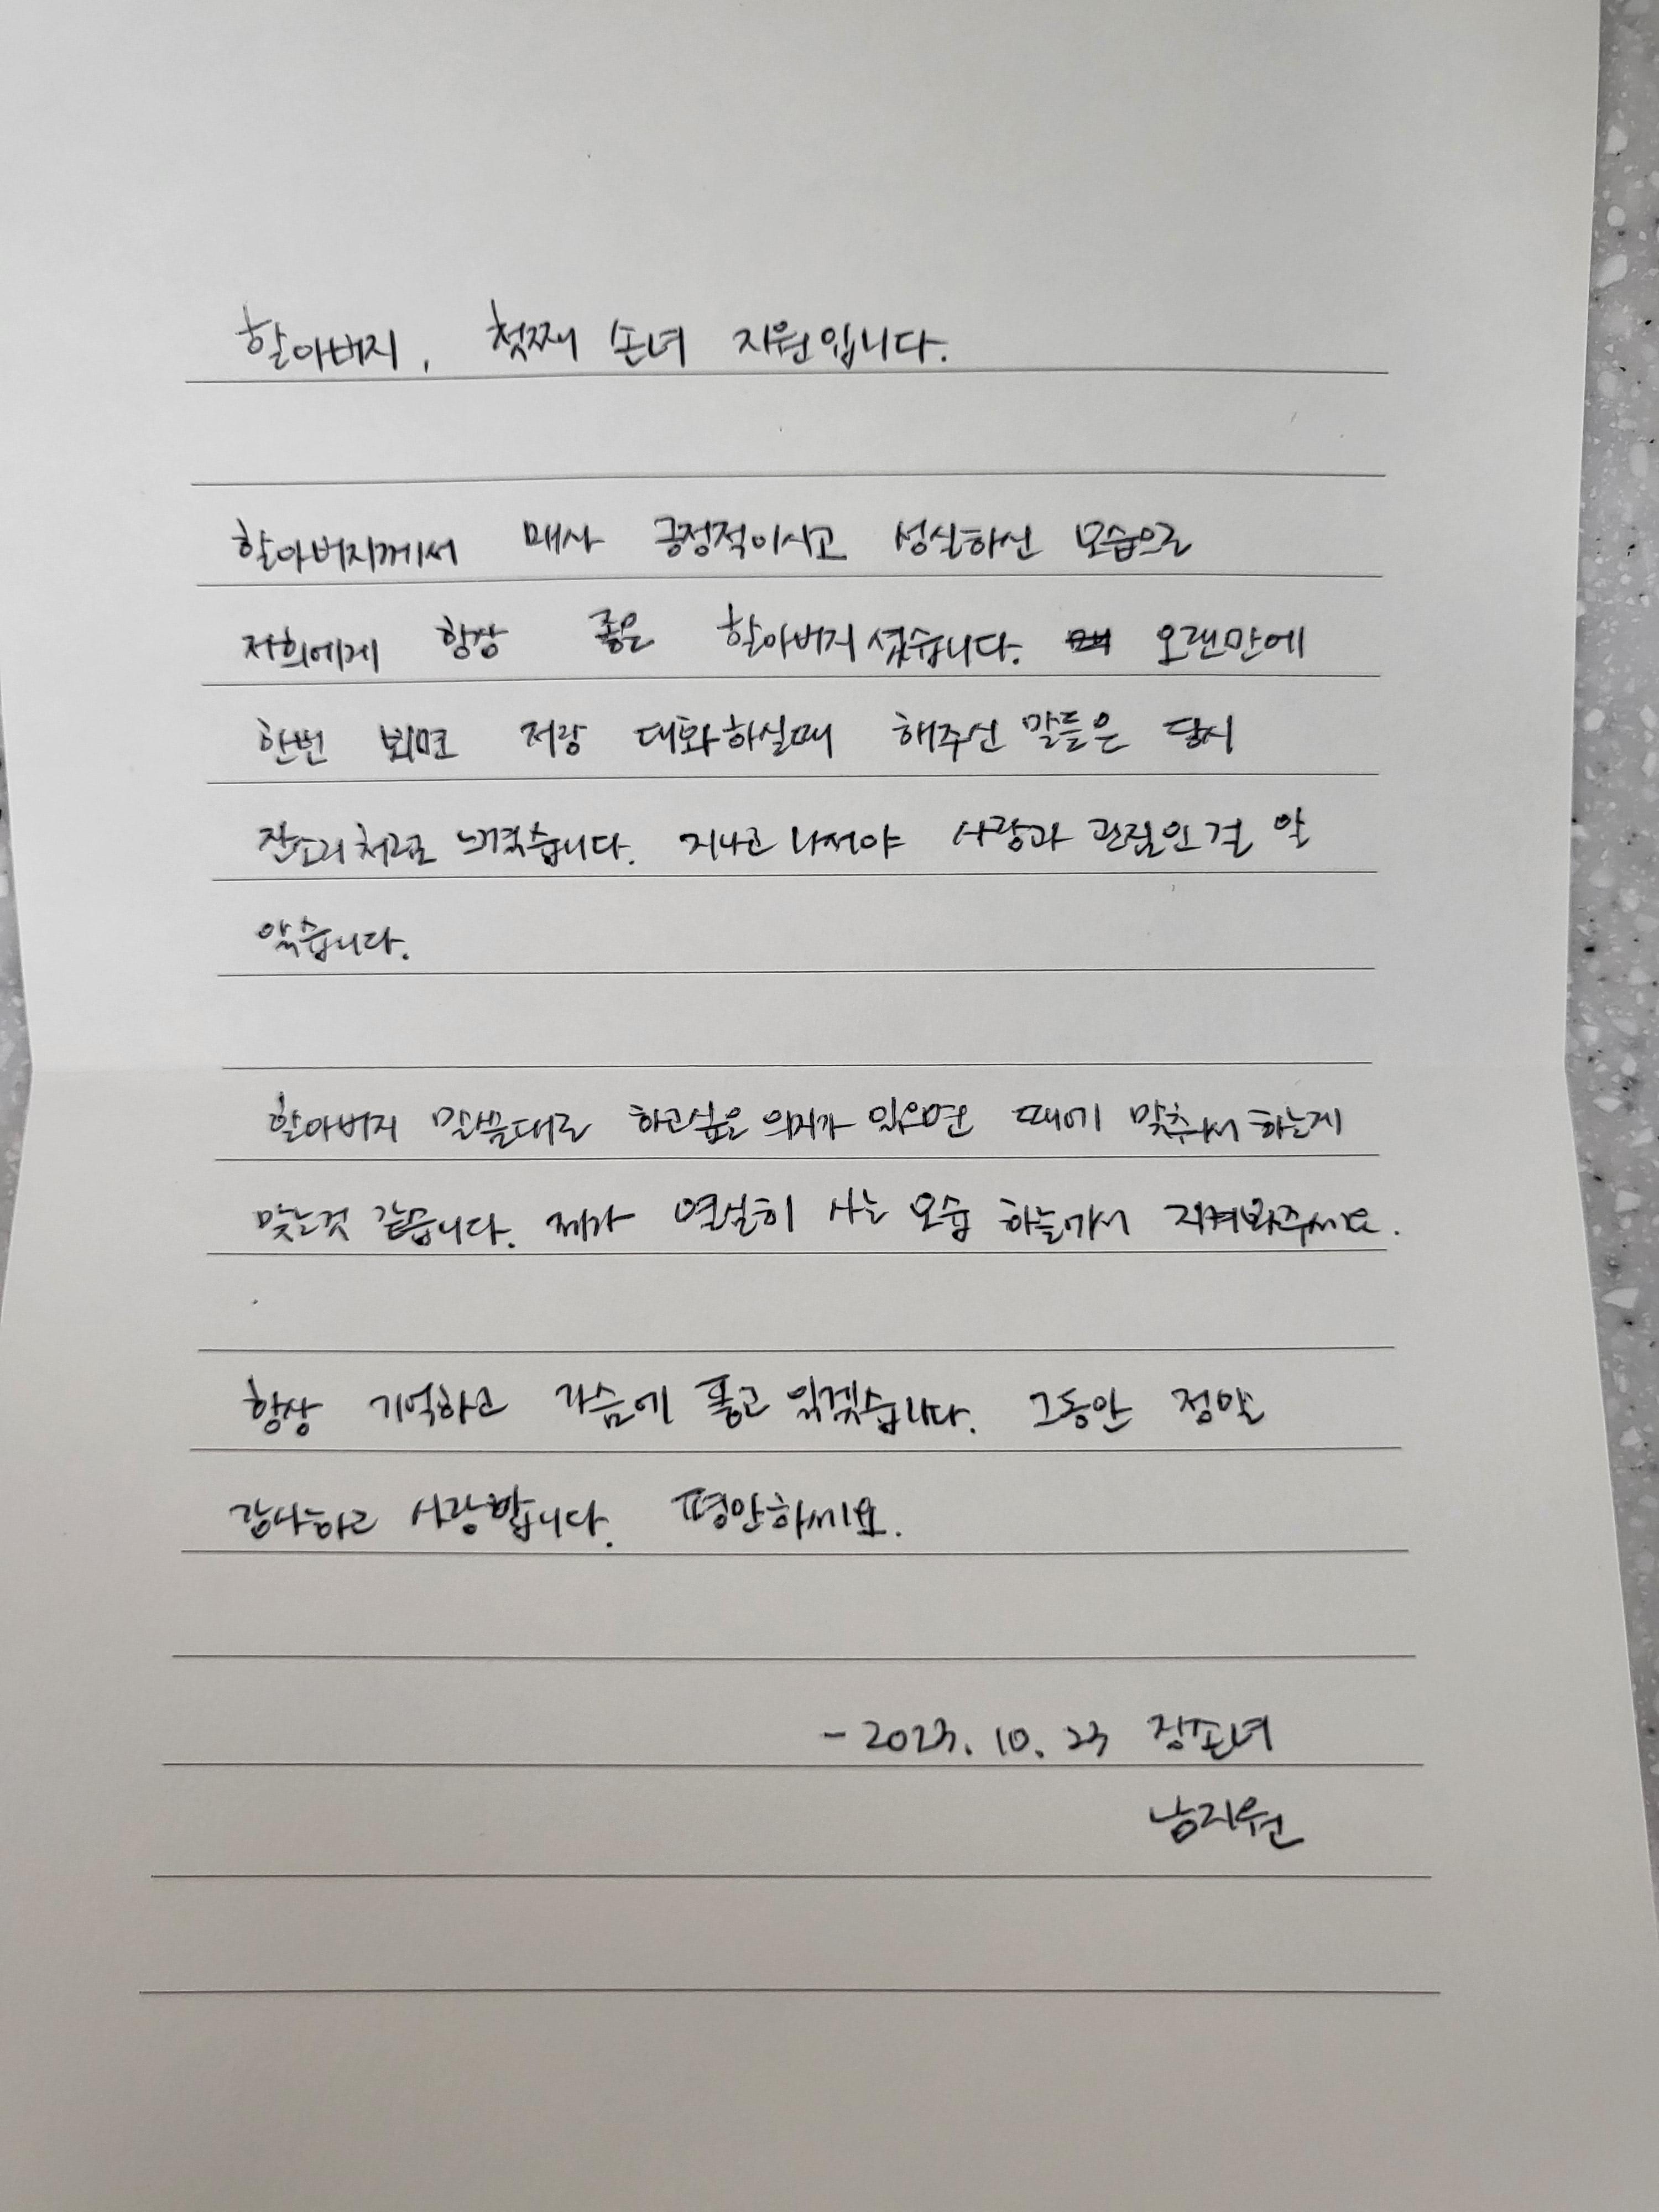 할아버지, 첫째 손녀 지원입니다.
할아버지께서 매사 긍정적이시고 성실하신 모습으로
저희에게 항상 좋은 할아버지셨습니다. 오랜만에
한번 뵈면 저랑 대화하실때 해주신 말들은 당시
잔소리처럼 느꼈습니다. 지나고 나서야 사랑과 관심인걸 알
았습니다.
할아버지 말씀대로 하고싶은 의지가 있으면 때에 맞춰서 하는게
맞는것 같습니다. 제가 열심히 사는 모습 하늘에서 지켜봐주세요.
항상 기억하고 가슴에 품고 있겠습니다. 그동안 정말
감사하고 사랑합니다. 평안하세요.
- 2023. 10. 23 장손녀
남지원